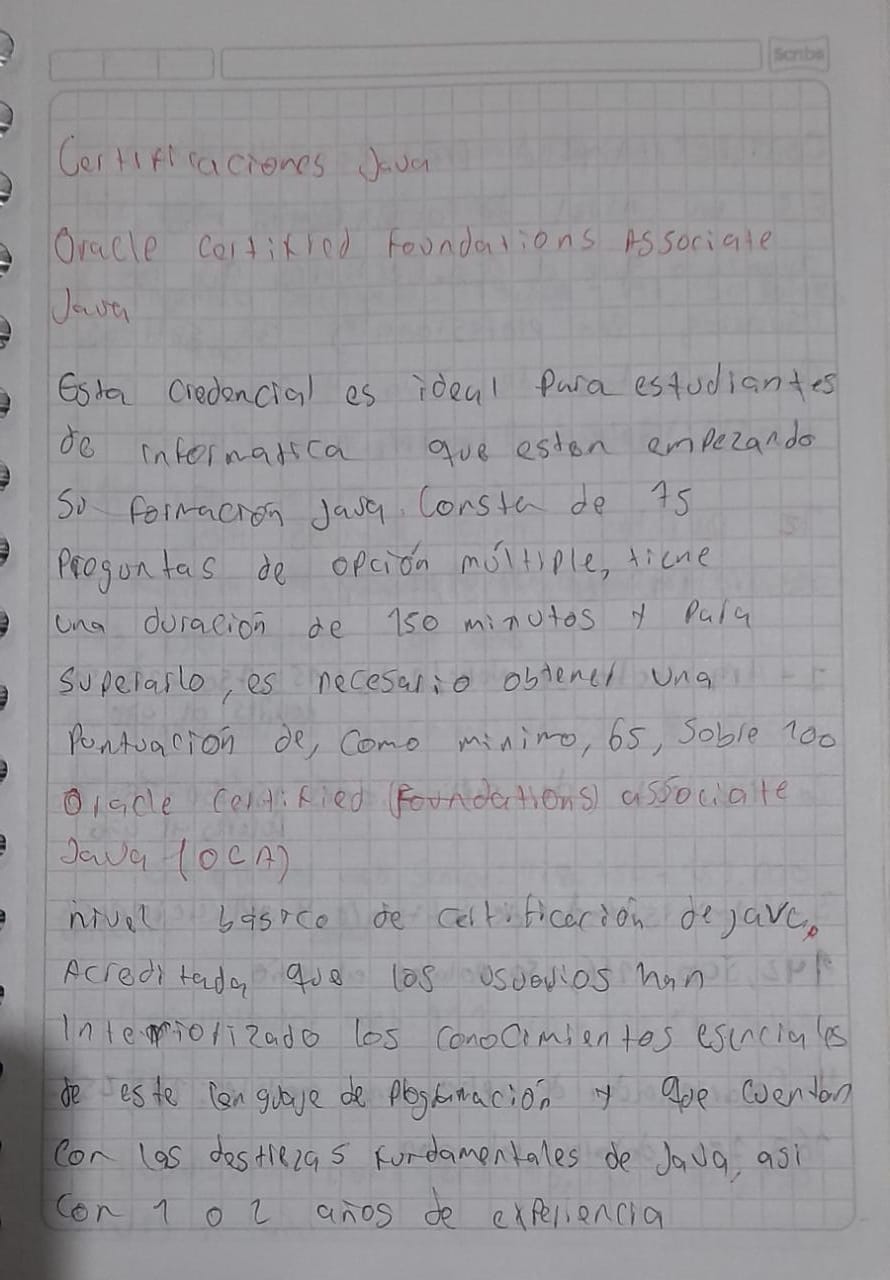 Scribe
Certificaciones Java
Oracle Certified Foundations Associate
Java
Esta credencial es ideal para estudiantes
de informatica que esten empezando
su formación java. Consta de 75
preguntas de opción múltiple, tiene
una duración de 150 minutos y para
superarlo, es necesario obtener una
puntuación de, como minimo, 65, sobre 100
Oracle Certified (Foundations) associate
Java (OCA)
nivel básico de certificación de java.
Acreditada que los usuarios han
Interiorizado los conocimientos esenciales
de este lenguaje de programación y que cuentan
con las destrezas fundamentales de Java, asi
con 1 o 2 años de experiencia